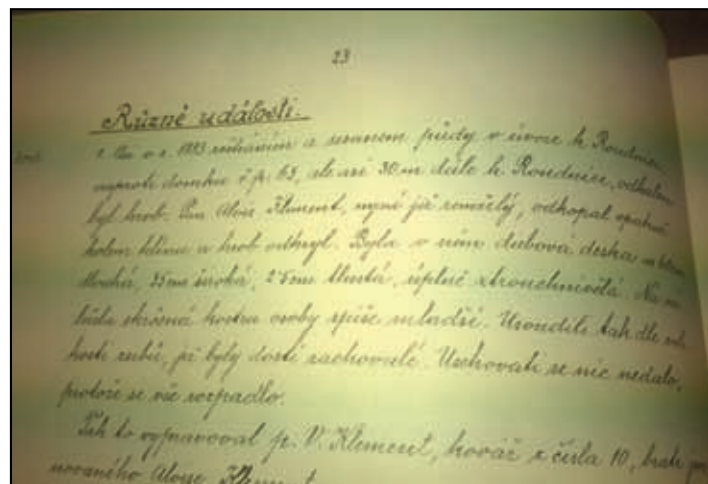 23
Různé události.
v r. 1893 a sesunem půdy v úvoze k Roudnici,
naproti domku č. p. 63, ale asi 30 m dále k Roudnici, odhalen
byl hrob. Pan Alois Kliment, nyní již zemřelý, odkopal opatrně
kolem hlínu a hrob odkryl. Byla v něm dubová deska
dlouhá, 35 cm široká, 2·5 cm tlustá, úplně ztrouchnivělá. Na ní
ležela skrčená kostra osoby spíše mladší. Usoudili tak dle
kosti zubů, jež byly dosti zachovalé. Uschovati se nic nedalo,
protože se vše rozpadlo.
Tak to vypravoval p. V. Klement, kovář z čísla 10, bratr
novaného Aloise